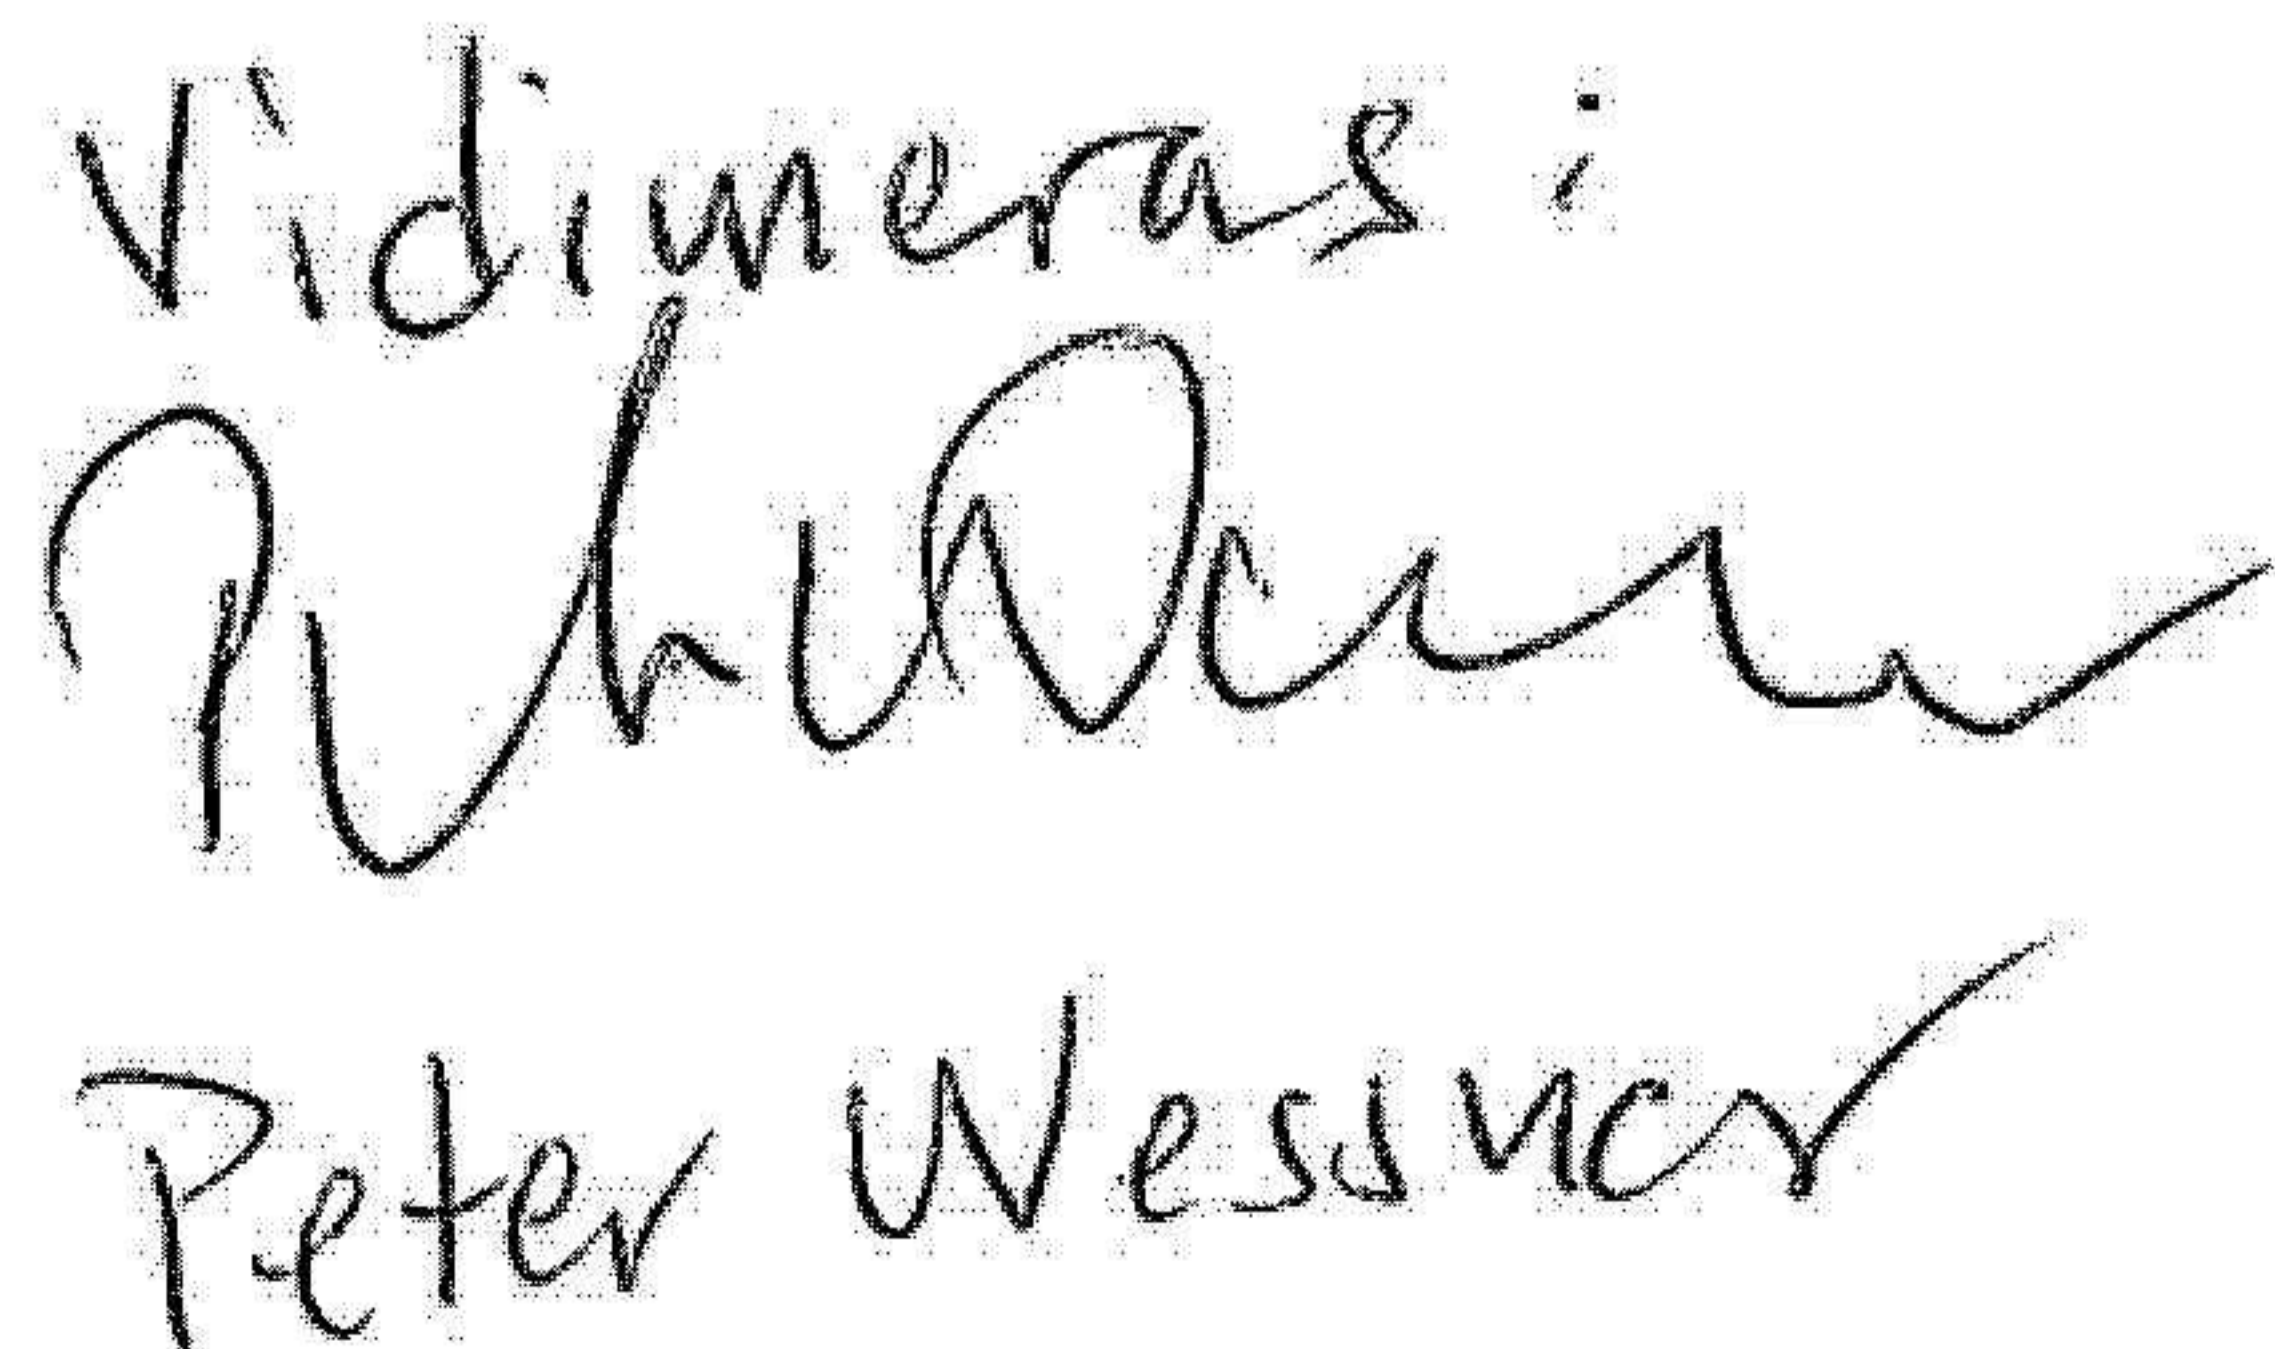 Vidimeras:
Peter Wessner